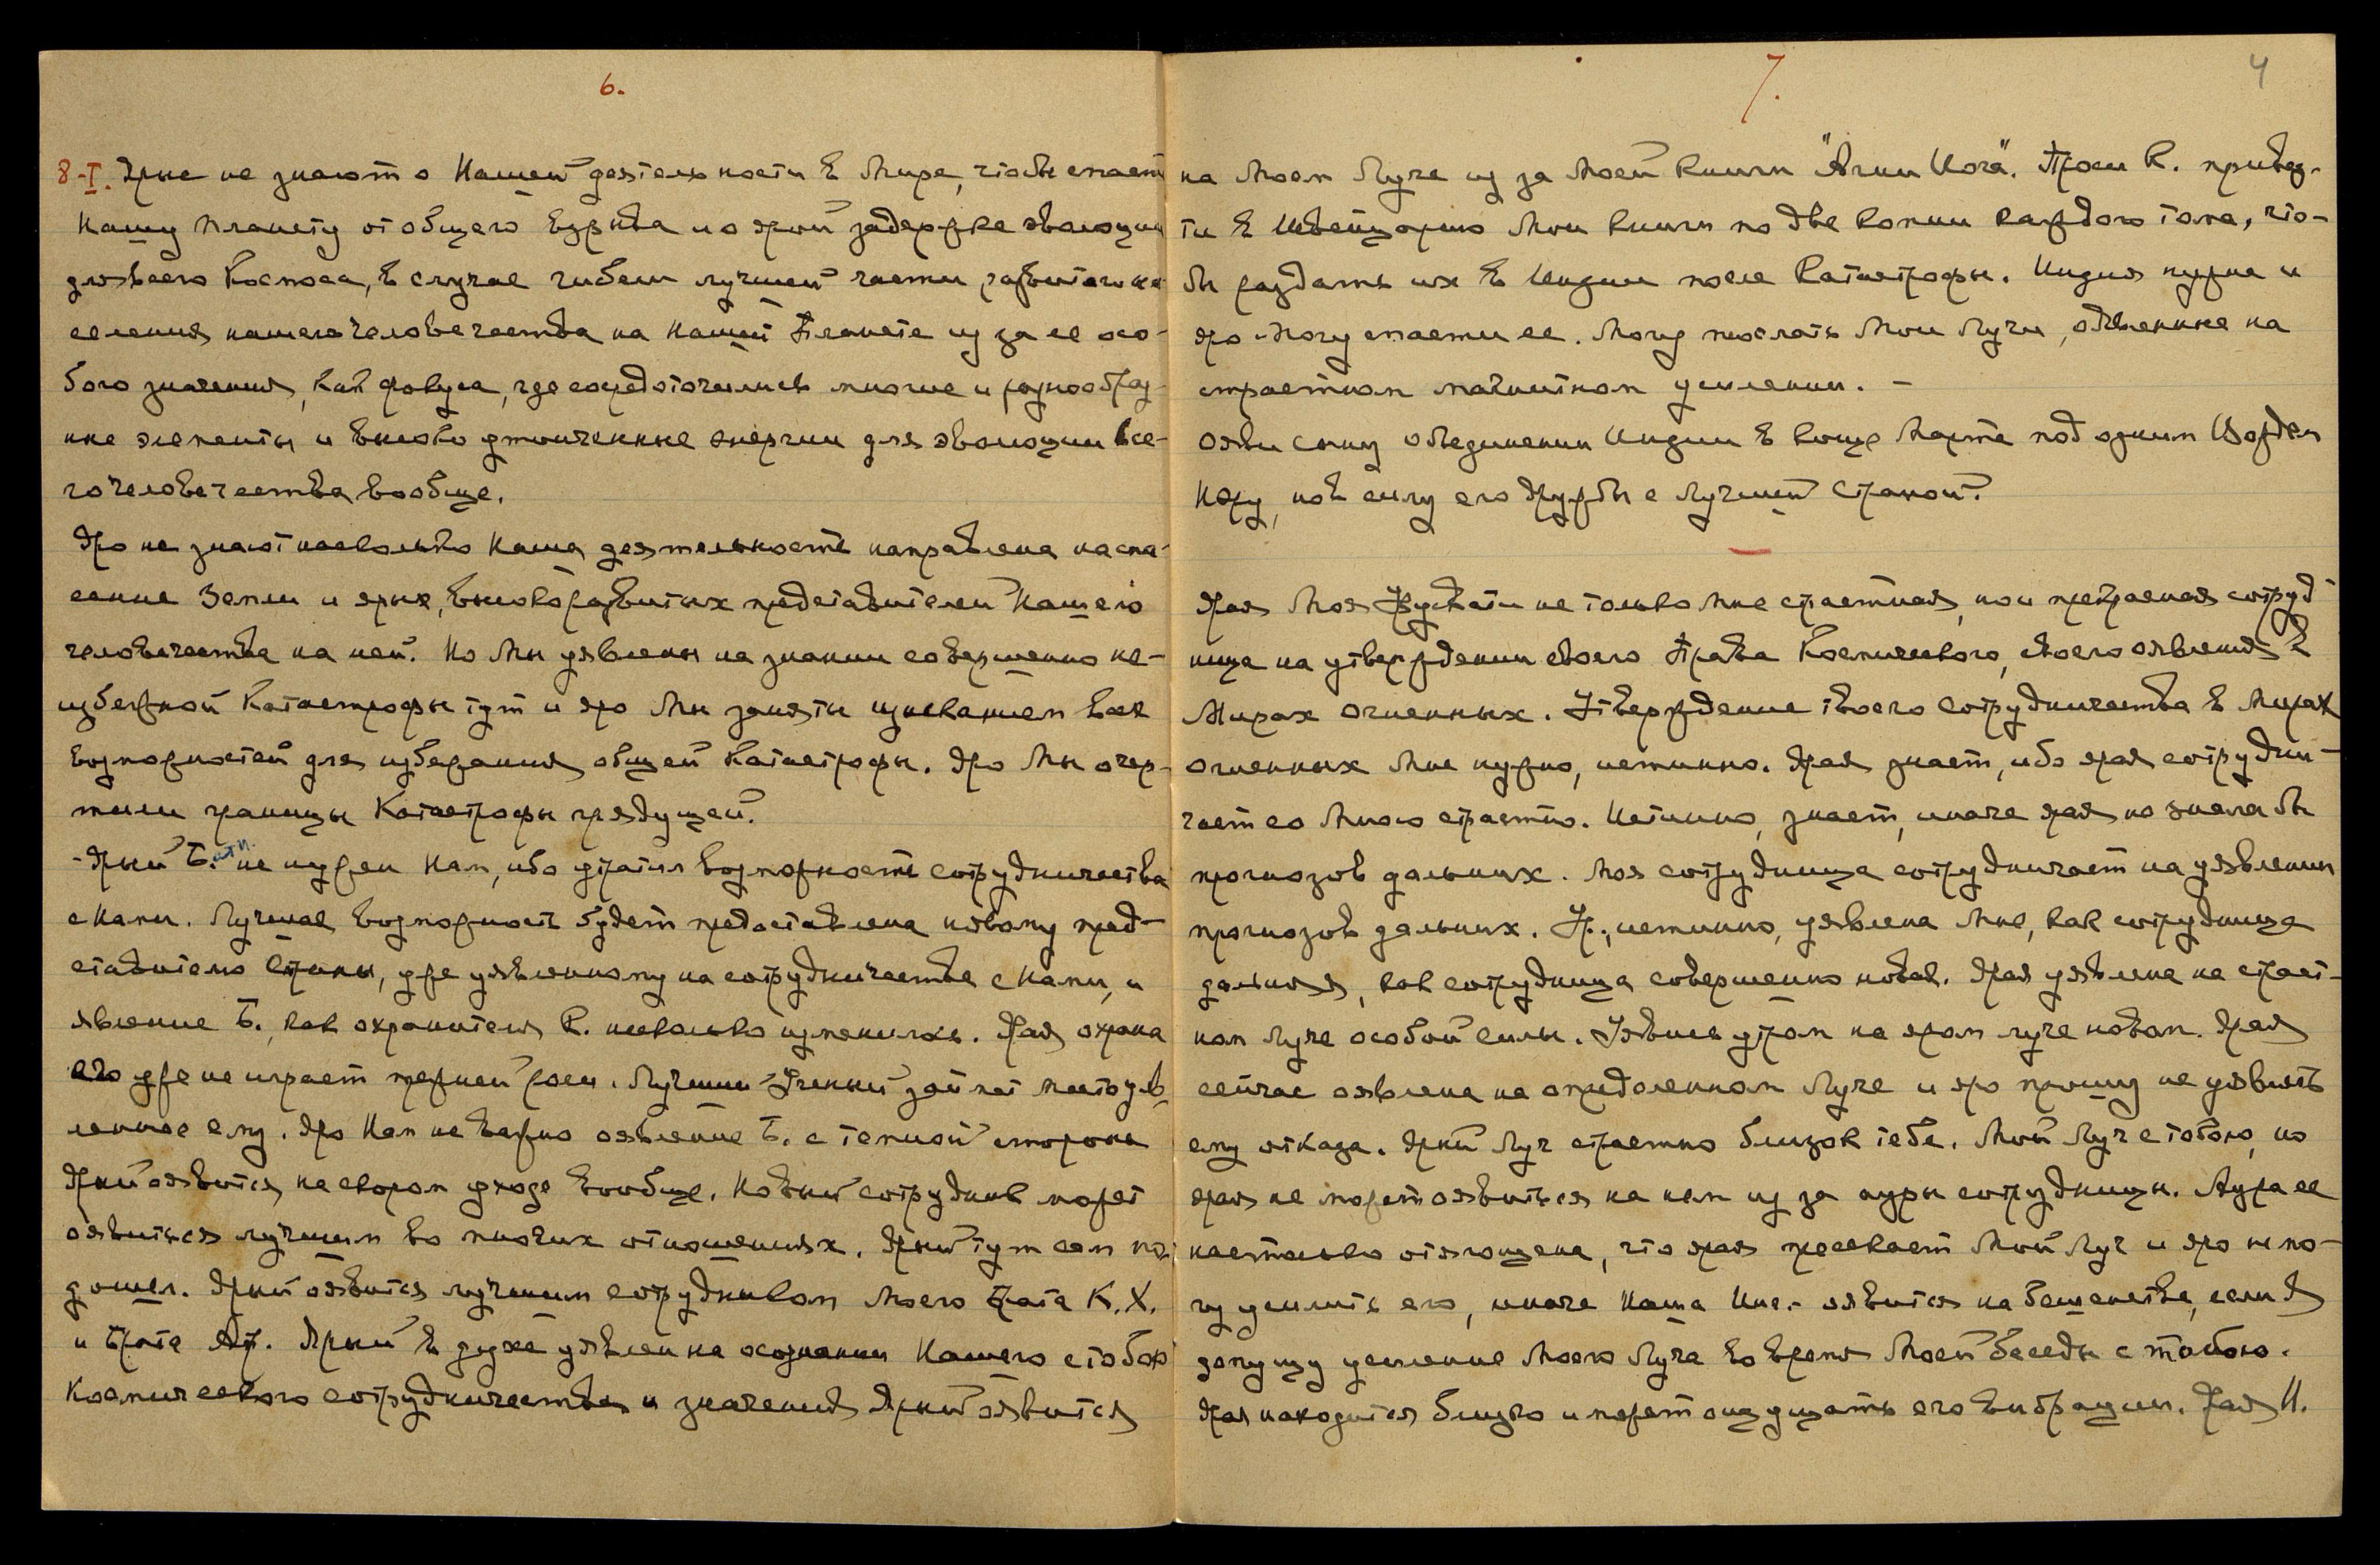 6.
8-I. Ярые не знают о Нашей деятельности в Мире, чтобы спасти
Нашу планету от общего взрыва и о ярой задержке эволюции
для всего Космоса, в случае гибели лучшей части развитого на-
селения нашего человечества на нашей Планете из за ее осо-
бого значения, как фокуса, где сосредоточились многие и разнообраз-
ные элементы и высоко утонченные энергии для эволюции все-
го человечества вообще.
Яро не знают насколько Наша деятельность направлена на спа-
сение Земли и ярых, высокоразвитых представителей Нашего
человечества на ней. Но Мы уявлены на знании совершенно не-
избежной Катастрофы тут и яро Мы заняты изысканием всех
возможностей для избежания общей Катастрофы. Яро Мы очер-
тили границы Катастрофы грядущей.
-Ярый Б. не нужен Нам, ибо утратил возможность сотрудничества
с Нами. Лучшая возможность будет предоставлена новому пред-
ставителю Страны, уже уявленному на сотрудничестве с Нами, и
явление Б., как охранителя К. несколько изменилось. Ярая охрана
его уже не играет прежней роли. Лучший Ученый займет место уяв-
ленное ему. Яро Нам не важно оявление Б. с темной стороны
Ярый оявится на скором уходе вообще. Новый сотрудник может
оявиться лучшим во многих отношениях. Ярый тут сам по-
дошел. Ярый оявится лучшим сотрудником Моего Брата К.Х.
и Брата Яр. Ярый в духе уявлен на осознании Нашего с тобою
Космического сотрудничества и значения Ярый оявится
7.
4
на Моем Луче из за Моей книги "Агни Йога". Проси К. привез-
ти в Швейцарию Мои книги по две копии каждого тома, что-
бы раздать их в Индии после Катастрофы. Индия нужна и
яро Могу спасти ее. Могу послать Мои Лучи, оявленные на
страстном магнитном усилении. -
Ояви сыну объединении Индии в конце Марта под одним Вождем
Неру, но в силу его дружбы с Лучшей Страной.
—
Ярая Моя Урусвати не только Мне страстная, но и прекрасная сотруд-
ница на утверждении своего Права Космического, своего оявления в
Мирах Огненных. Утверждение твоего сотрудничества в Мирах
Огненных Мне нужно, истинно. Ярая знает, ибо ярая сотрудни-
чает со Мною страстно. Истинно, знает, иначе ярая не знала бы
прогнозов дальних. Моя сотрудница сотрудничает на уявлении
прогнозов дальних. У., истинно, уявлена Мне, как сотрудница
дальняя, как сотрудница совершенно новая. Ярая уявлена на страст-
ном Луче особой силы. Уявись утром на яром луче новом. Ярая
сейчас оявлена на определенном Луче и яро прошу не уявлять
ему отказа. Ярый Луч страстно близок тебе. Мой Луч с тобою, но
ярая не может оявиться на нем из за ауры сотрудницы. Аура ее
настолько отягощена, что ярая пресекает Мой Луч и яро не мо-
гу усилить его, иначе Наша Ине.- оявится на бешенстве, если Я
допущу усиление Моего Луча во время Моей беседы с тобою.
Ярая находится близко и может ощущать его вибрации. Ярая И.